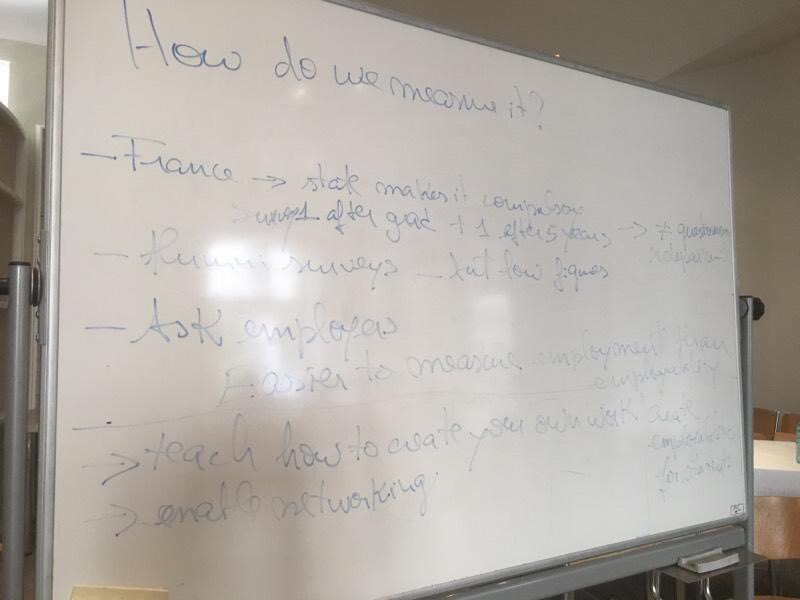 How do we measure it?
– France → state makes it compulsory
survey 1 after grad + 1 after 5 years → ≠
– Alumni surveys – but low figures
– Ask employers
Easier to measure employment than
employability
→ teach how to create your own work
→ enable networking
create
for students